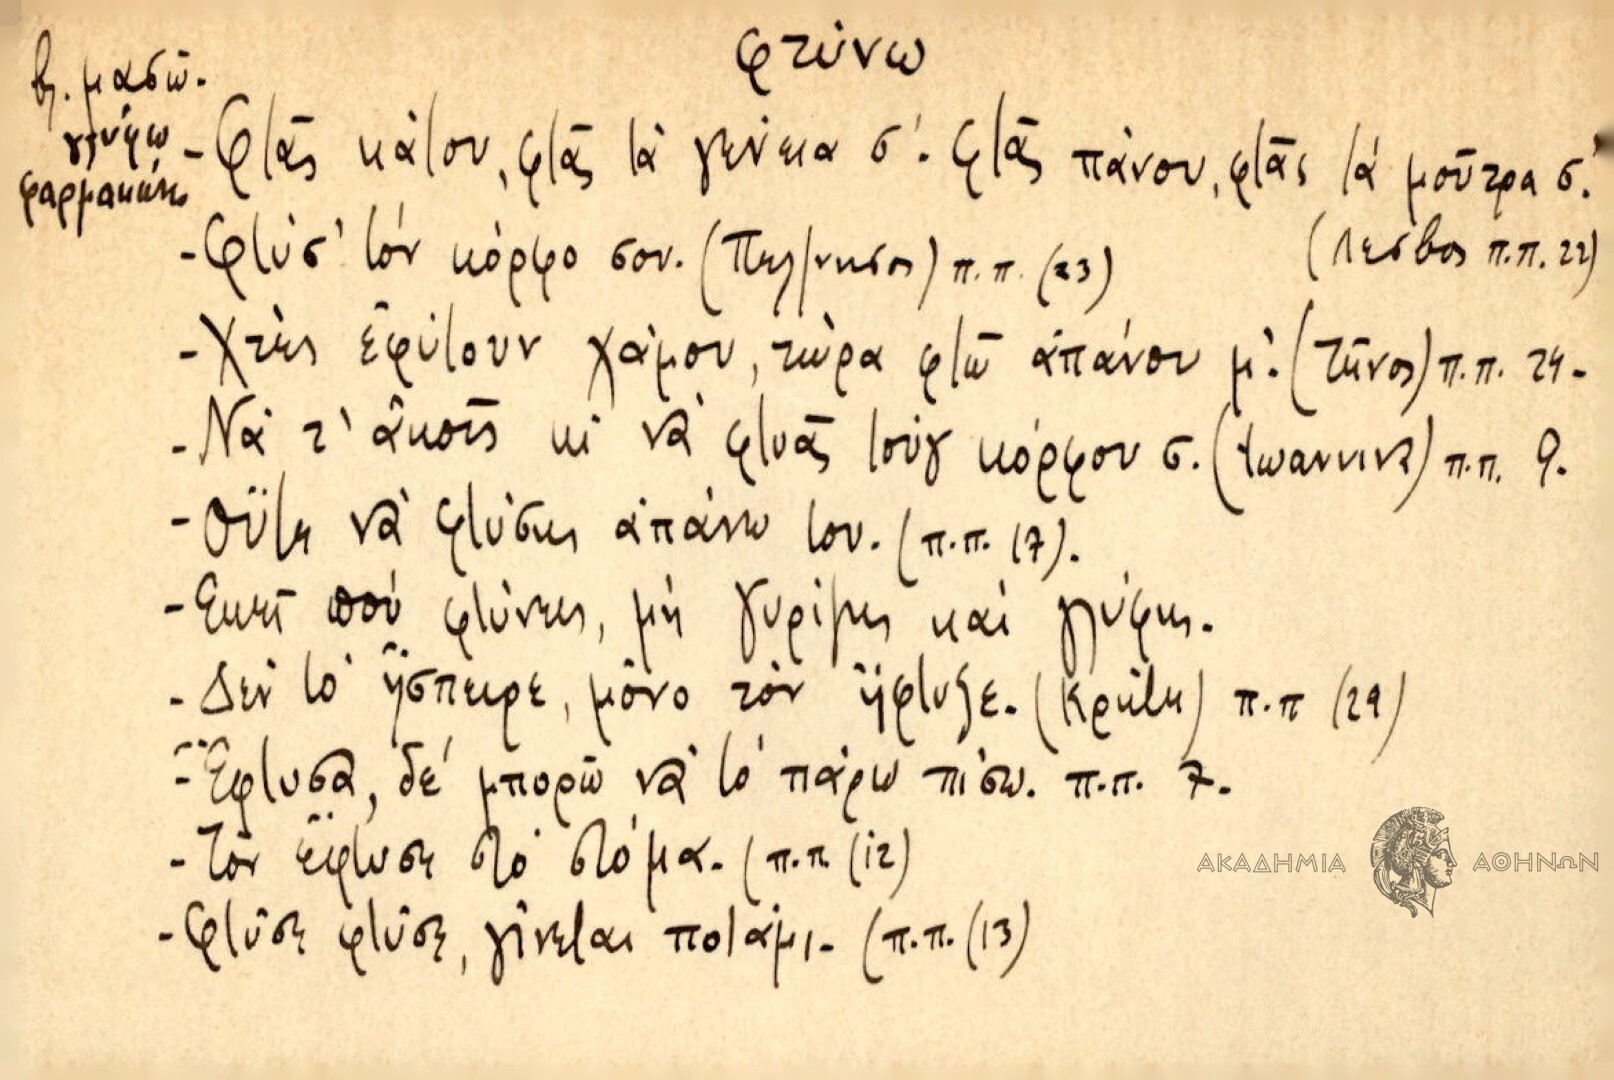 φτύνω
βλ. μασῶ.
γλύφω
φαρμακώνω
- Φτᾶς κάτου, φτᾶς τὰ γένεια σ'. Φτᾶς πάνου, φτᾶς τὰ μοῦτρα σ.'
(Λέσβος π.π. 22)
- Φτύσ' τὸν κόρφο σου. (Πελ/νησος) π.π. (23)
- Χτὲς ἔφτουν χάμου, τώρα φτῶ ἀπάνου μ'. (Τῆνος) π.π. 24.
- Νὰ τ' ἀκοῦς κὶ νὰ φτυᾶς τοὺγ κόρφου σ. (Ἰωάννινα) π.π. 9.
- Οὔτε νὰ φτύσῃς ἀπάνω του. (π.π. 17).
- Ἐκεῖ ποὺ φτύνεις, μὴ γυρίζῃς καὶ γλύφῃς.
- Δὲν τὸ ἤσπειρε, μόνο τὸν ἤφτυξε. (Κρήτη) π.π (29)
- Ἔφτυσα, δὲ μπορῶ νὰ τὸ πάρω πίσω. π.π. 7.
- Τὸν ἔφτυσε στὸ στόμα. (π.π. (12)
- Φτύσε φτύσε, γίνεται ποτάμι. (π.π. (13)
ΑΚΑΔΗΜΙΑ ΑΘΗΝΩΝ